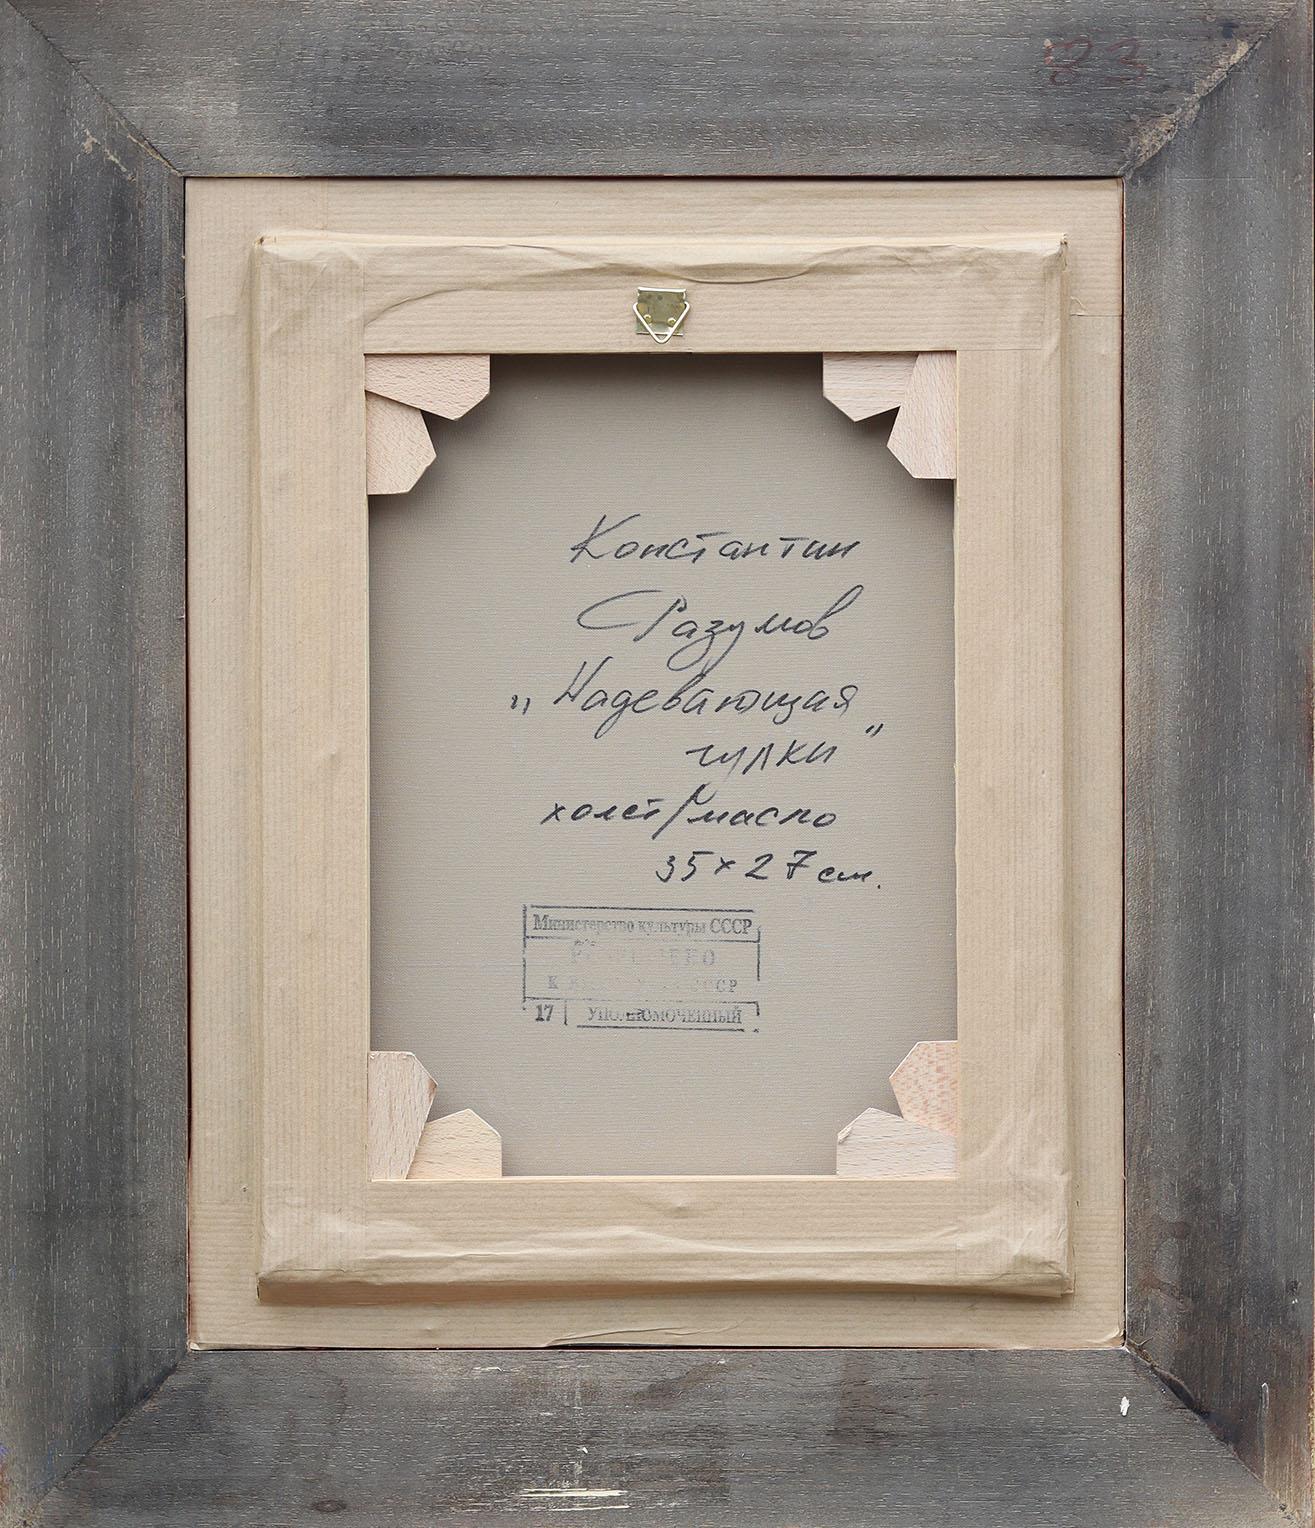 83
Константин
Разумов
„Надевающая
чулки"
холст/масло
35×27 см.
Министерство культуры СССР
СССР
17 УПОЛНОМОЧЕННЫЙ